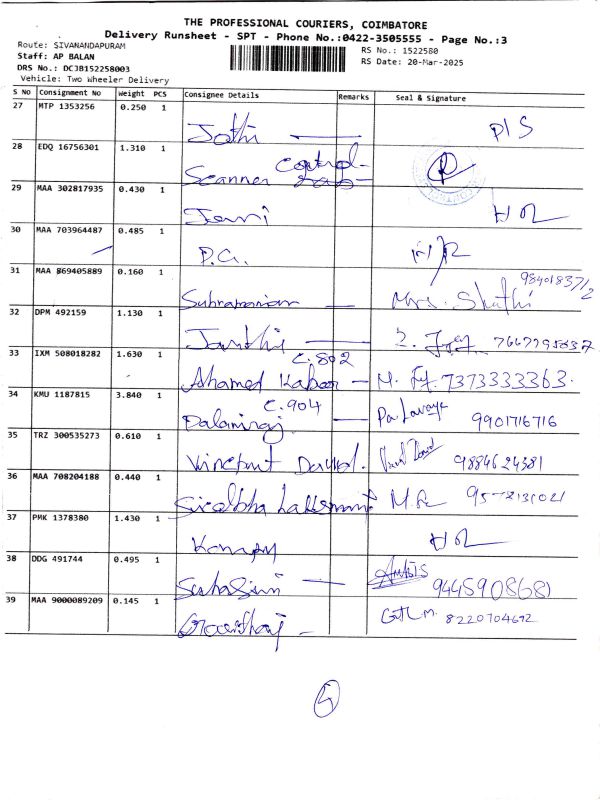 THE PROFESSIONAL COURIERS, COIMBATORE
Delivery Runsheet - SPT - Phone No.:0422-3505555 - Page No.:3
Route: SIVANANDAPURAM
RS No.: 1522580
Staff: AP BALAN
RS Date: 20-Mar-2025
DRS No.: DC3B152258003
Vehicle: Two Wheeler Delivery
S No Consignment No Weight PCS Consignee Details Remarks Seal & Signature
27 MTP 1353256 0.250 1
Jothi P/S
28 EDQ 16756301 1.310 1
Control
Scanner
29 MAA 302817935 0.430 1
Jani
30 MAA 703964487 0.485 1
P.G.
31 MAA 869405889 0.160 1
Subramanian Mrs. Shathi 9840183712
32 DPM 492159 1.130 1
Janthi
33 IXM 508018282 1.630 1
C.802
Ahamed Kabeer M. 7373333363.
34 KMU 1187815 3.840 1
C.904
Palaniraj 9901716716
35 TRZ 300535273 0.610 1
Vincent David. 9884624381
36 MAA 708204188 0.440 1
37 PMK 1378380 1.430 1
38 DDG 491744 0.495 1
Suhasini 9445908681
39 MAA 9000089209 0.145 1
8220704692
5